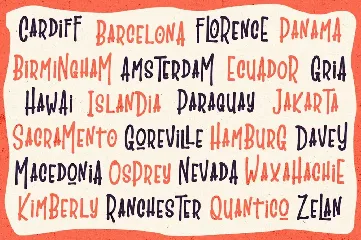 CARDIFF BARCELONA FLORENCE PANAMA
BIRMINGHAM AMSTERDAM ECUADOR GRIA
HAWAI ISLANDIA PARAGUAY JAKARTA
SACRAMENTO GOREVILLE HAMBURG DAVEY
MACEDONIA OSPREY NEVADA WAXAHACHIE
KIMBERLY RANCHESTER QUANTICO ZELAN